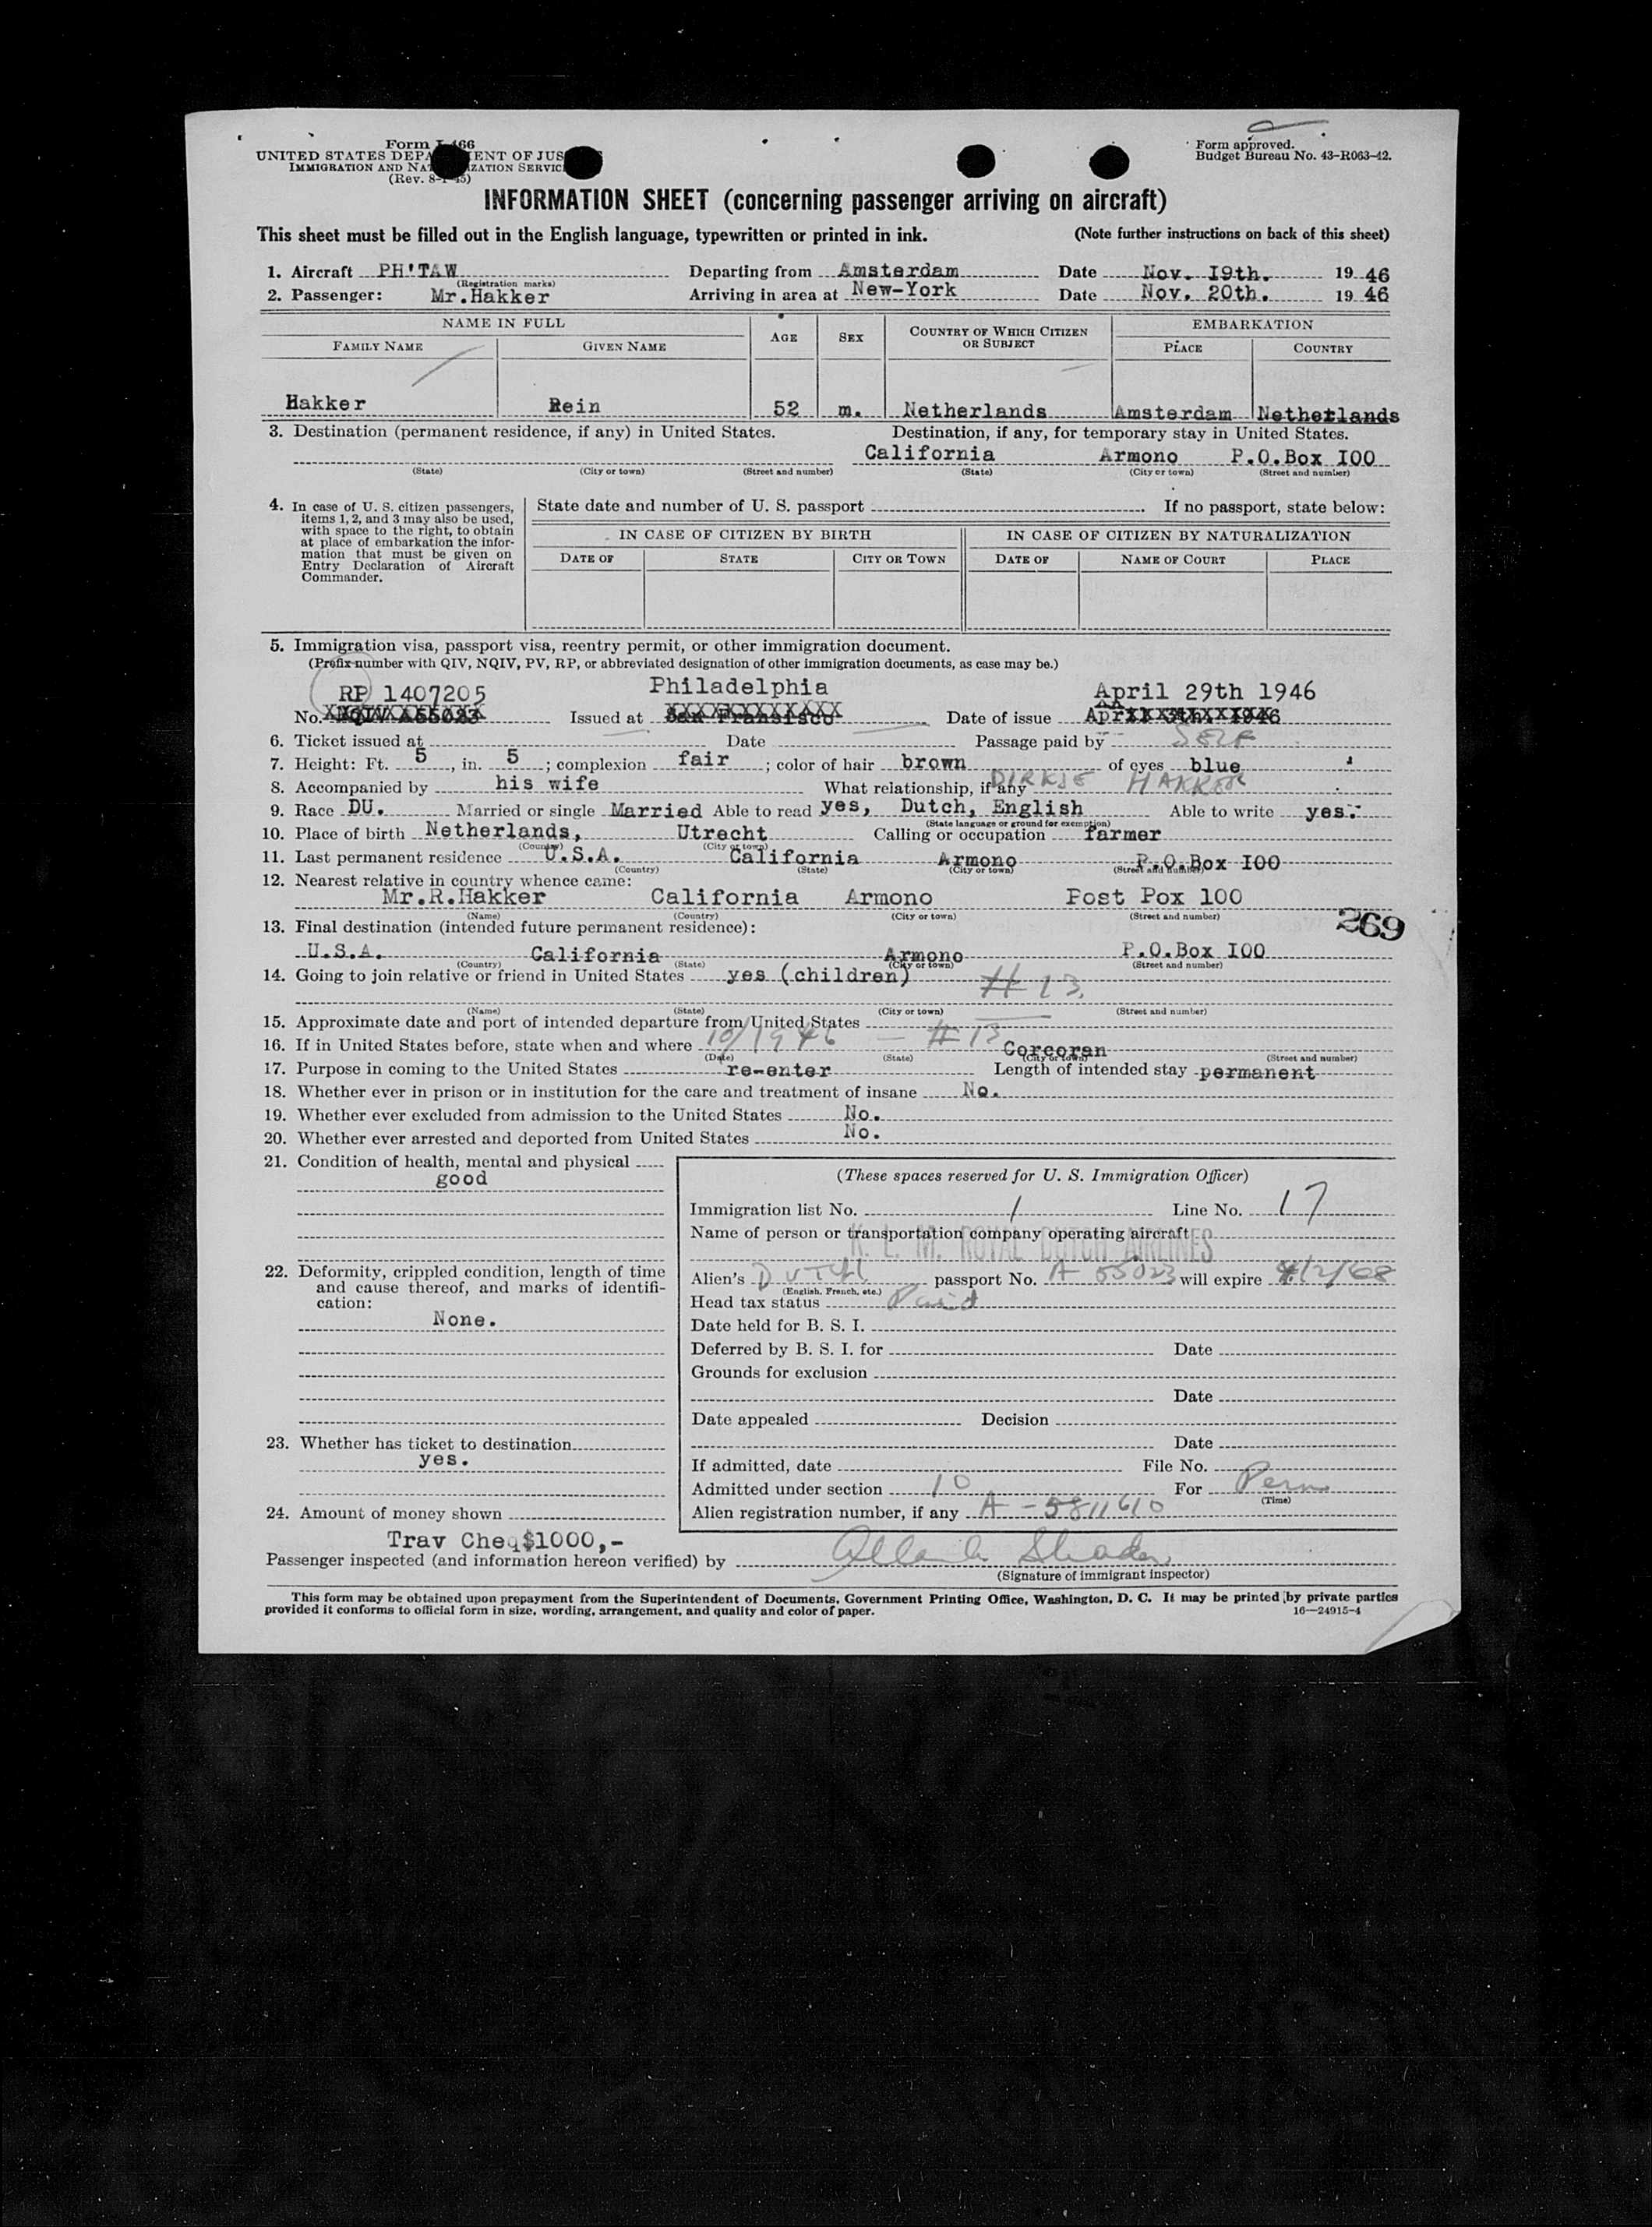 Form I-466
UNITED STATES DEPARTMENT OF JUSTICE
IMMIGRATION AND NATURALIZATION SERVICE
(Rev. 8-1-45)
Form approved.
Budget Bureau No. 43-R063-42.
INFORMATION SHEET (concerning passenger arriving on aircraft)
This sheet must be filled out in the English language, typewritten or printed in ink. (Note further instructions on back of this sheet)
1. Aircraft PH'TAW Departing from Amsterdam Date Nov. I9th. 19 46
(Registration marks)
2. Passenger: Mr.Hakker Arriving in area at New-York Date Nov. 20th. 19 46
NAME IN FULL AGE SEX COUNTRY OF WHICH CITIZEN OR SUBJECT EMBARKATION
FAMILY NAME GIVEN NAME PLACE COUNTRY
Hakker Rein 52 m. Netherlands Amsterdam Netherlands
3. Destination (permanent residence, if any) in United States. Destination, if any, for temporary stay in United States.
California Armono P.O.Box I00
(State) (City or town) (Street and number) (State) (City or town) (Street and number)
4. In case of U. S. citizen passengers, items 1, 2, and 3 may also be used, with space to the right, to obtain at place of embarkation the information that must be given on Entry Declaration of Aircraft Commander.
State date and number of U. S. passport If no passport, state below:
IN CASE OF CITIZEN BY BIRTH IN CASE OF CITIZEN BY NATURALIZATION
DATE OF STATE CITY OR TOWN DATE OF NAME OF COURT PLACE
5. Immigration visa, passport visa, reentry permit, or other immigration document.
(Prefix number with QIV, NQIV, PV, RP, or abbreviated designation of other immigration documents, as case may be.)
RP 1407205 Philadelphia April 29th 1946
No. NQIV A55023 Issued at San Fransisco Date of issue April 1946
6. Ticket issued at Date Passage paid by SELF
7. Height: Ft. 5, in. 5; complexion fair; color of hair brown of eyes blue
8. Accompanied by his wife What relationship, if any DIRKJE HAKKER
9. Race DU. Married or single Married Able to read yes, Dutch, English Able to write yes.
(State language or ground for exemption)
10. Place of birth Netherlands, Utrecht Calling or occupation farmer
(Country) (City or town)
11. Last permanent residence U.S.A. California Armono P.O.Box I00
(Country) (State) (City or town) (Street and number)
12. Nearest relative in country whence came:
Mr.R.Hakker California Armono Post Pox 100
(Name) (Country) (City or town) (Street and number)
269
13. Final destination (intended future permanent residence):
U.S.A. California Armono P.O.Box I00
(Country) (State) (City or town) (Street and number)
14. Going to join relative or friend in United States yes (children)
# 13
(Name) (State) (City or town) (Street and number)
15. Approximate date and port of intended departure from United States
16. If in United States before, state when and where 10/1946 - # 13 Corcoran
(Date) (State) (City or town) (Street and number)
17. Purpose in coming to the United States re-enter Length of intended stay permanent
18. Whether ever in prison or in institution for the care and treatment of insane No.
19. Whether ever excluded from admission to the United States No.
20. Whether ever arrested and deported from United States No.
21. Condition of health, mental and physical
good
22. Deformity, crippled condition, length of time and cause thereof, and marks of identification:
None.
23. Whether has ticket to destination
yes.
24. Amount of money shown
Trav Cheq$1000,-
(These spaces reserved for U. S. Immigration Officer)
Immigration list No. 1 Line No. 17
Name of person or transportation company operating aircraft
K. L. M. ROYAL DUTCH AIRLINES
Alien's DUTCH passport No. A 55023 will expire 4/2/68
(English, French, etc.)
Head tax status Paid
Date held for B. S. I.
Deferred by B. S. I. for Date
Grounds for exclusion
Date
Date appealed Decision
Date
If admitted, date File No.
Admitted under section 10 For Perm
(Time)
Alien registration number, if any A-5811610
Passenger inspected (and information hereon verified) by
(Signature of immigrant inspector)
This form may be obtained upon prepayment from the Superintendent of Documents, Government Printing Office, Washington, D. C. It may be printed by private parties
provided it conforms to official form in size, wording, arrangement, and quality and color of paper. 16—24915-4